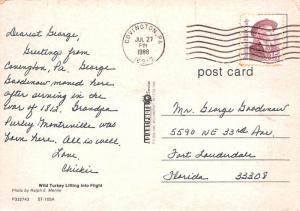 Dearest George,
Greetings from
Covington, Pa. George
Goodenow moved here
after serving in the
war of 1812. Grandpa
Pursey Montreville was
born here. All is well.
Love,
Chickie
Wild Turkey Lifting Into Flight
Photo by Ralph E. Merine
P332743 ST-105A
COVINGTON, PA
JUL 27
PM
1988
post card
Mr. George Goodenow
5590 NE 33rd Ave,
Fort Lauderdale
Florida 33308